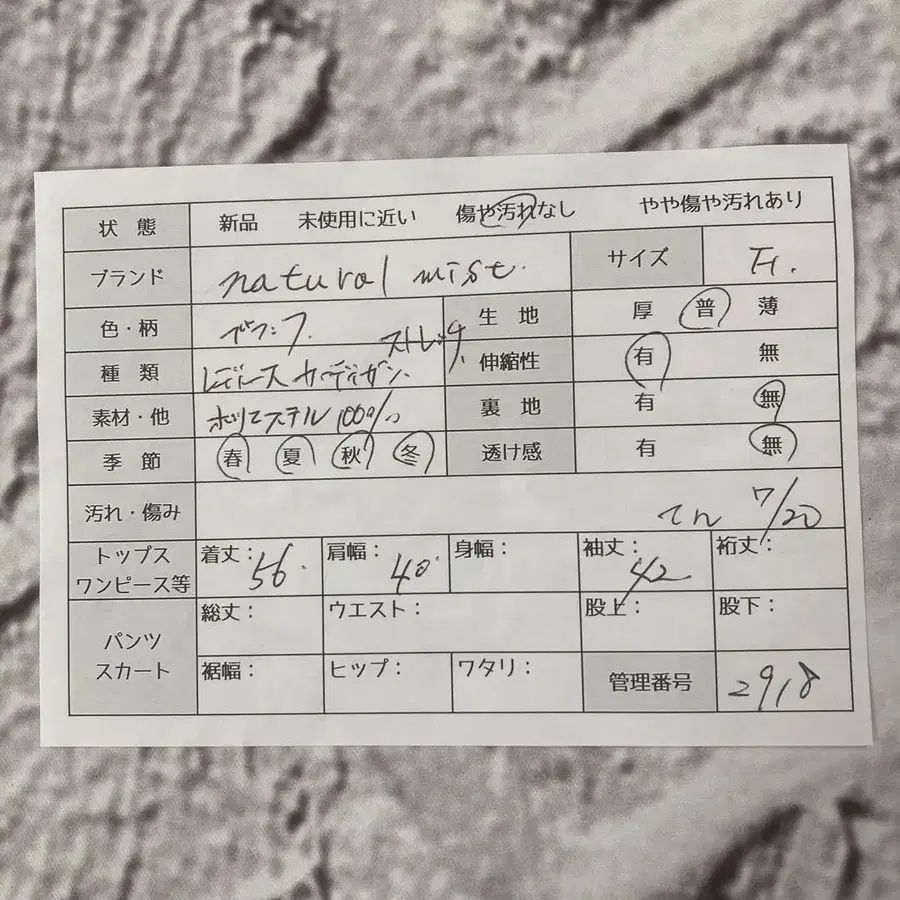 状 態 新品 未使用に近い 傷や汚れなし やや傷や汚れあり
ブランド natural mist. サイズ Fr.
色・柄 ストレッチ 生 地 厚 普 薄
種 類 レディース カーディガン 伸縮性 有 無
素材・他 ポリエステル 100% 裏 地 有 無
季 節 春 夏 秋 冬 透け感 有 無
汚れ・傷み てん 7/20
トップス ワンピース等 着丈: 56. 肩幅: 40. 身幅: 袖丈: 42 裄丈:
パンツ スカート 総丈: ウエスト: 股上: 股下:
裾幅: ヒップ: ワタリ: 管理番号 2918